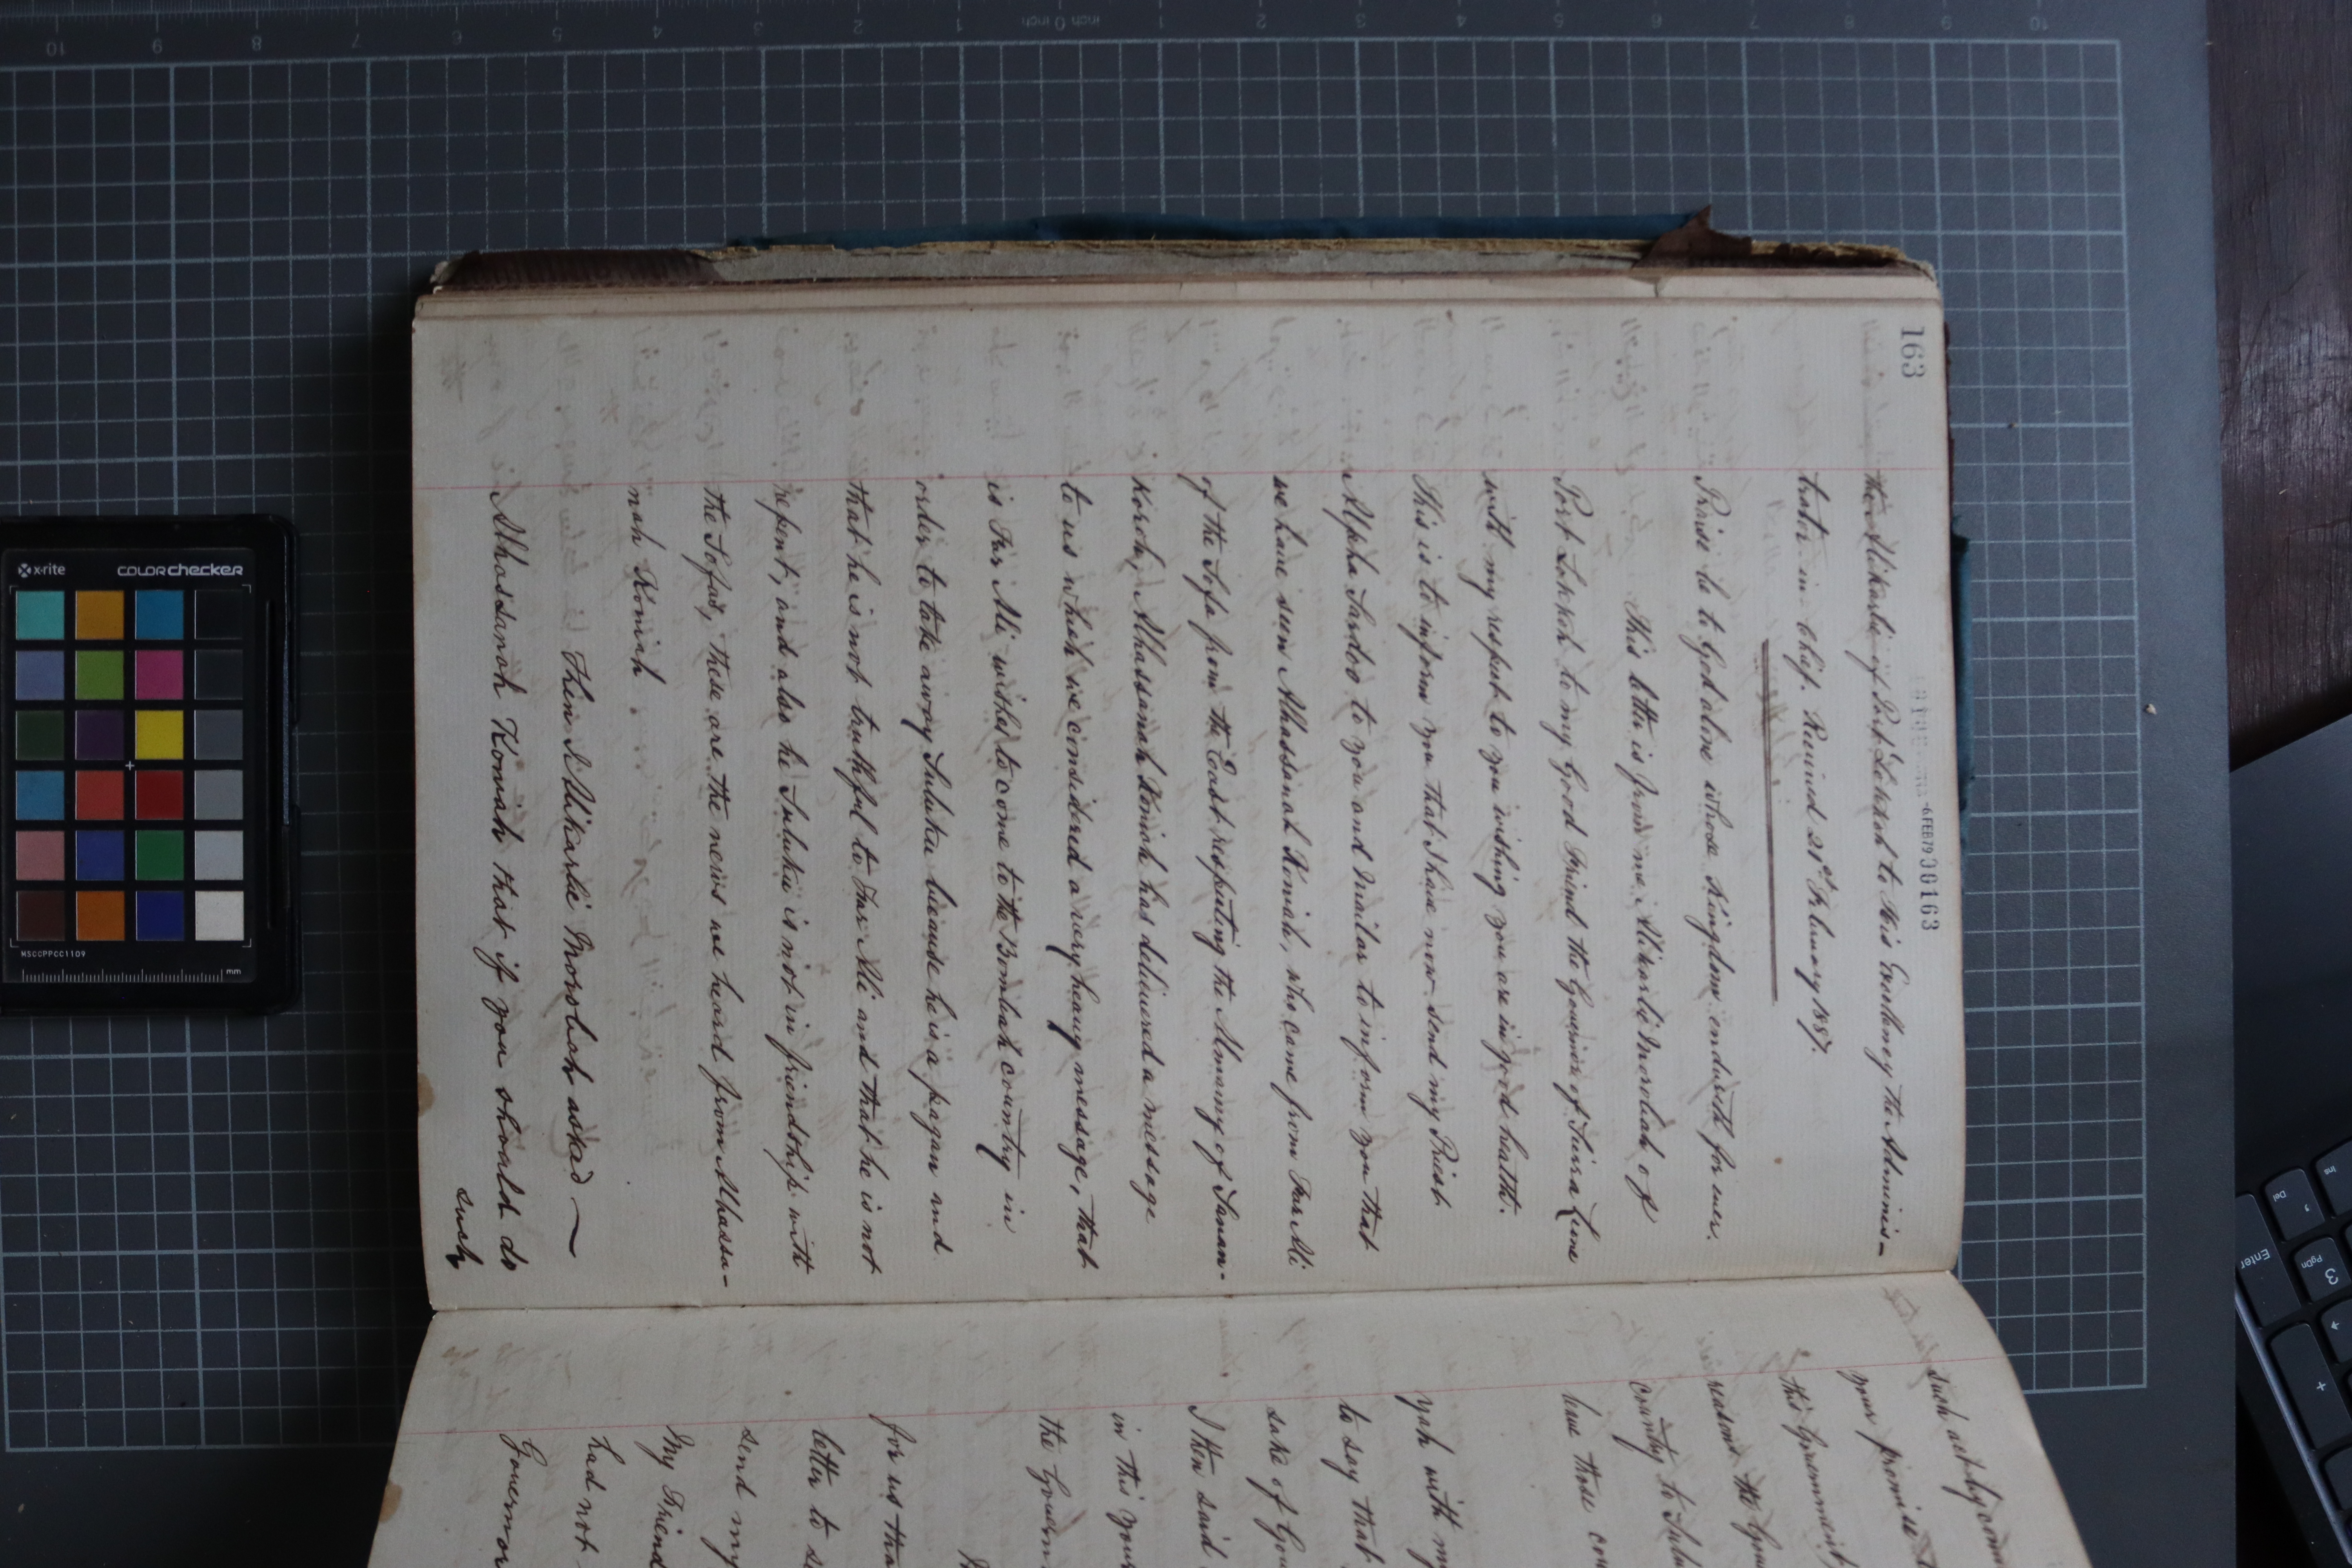 163
-6FEB79 30163
the Alikarlie of Port Lokkoh to His Excellency the Adminis-
trator in Chief. Received 21st February 1887.
Praise be to God alone whose Kingdom endureth for ever.
This letter is from me, Alikarlie Morobah of
Port Lokkoh to my Good Friend the Governor of Sierra Leone
with my respect to you wishing you are in good health.
This is to inform you that I have now send my Priest
Alpha Sardoo to you and Smailar to inform you that
we have seen Alhassanah Koniah, who came from Far Ali
of the Sofa from the East respecting the Almamy of Sanan-
Koroh, Alhassanah Koniah has delivered a message
to us which we considered a very heavy message, that
is Far Ali wishes to come to the Bombah country in
order to take away Suluku because he is a pagan and
that he is not truthful to Far Ali and that he is not
repent; and also he Suluku is not in friendship with
the Sofas, these are the news we heard from Alhassa-
nah Koniah.
Then I Alikarlie Morobah asked
Alhassanah Koniah that if you should do
such
such act by com
your promise t
this Government,
reasons the Gov
country to Sulu
have those co
yah with my
to say that
sake of Go
I then said
in this your
the Govern
for us tha
letter to s
send my
My Friend
had not
Governor
x-rite
COLORchecker
MSCCPPCC1109
mm
inch 0 inch
10 9 8 7 6 5 4 3 2 1
1 2 3 4 5 6 7 8 9 10
Enter
3
PgDn
Del
Ins
+